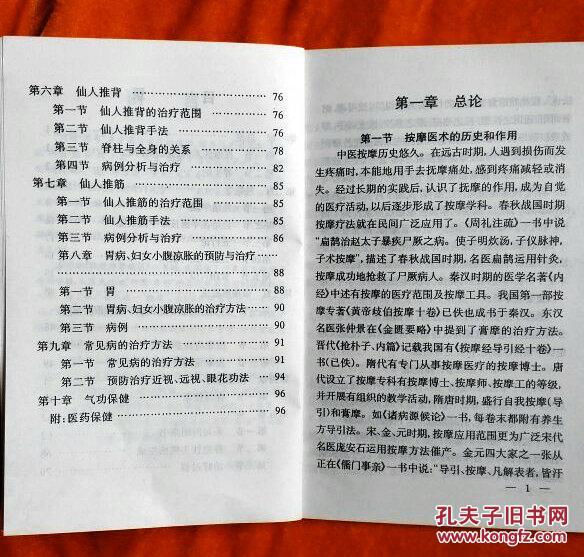 第六章　仙人推背 ………………………… 76
第一节　仙人推背的治疗范围 ………… 76
第二节　仙人推背手法 ………………… 76
第三节　脊柱与全身的关系 …………… 78
第四节　病例分析与治疗 ……………… 82
第七章　仙人推筋 ………………………… 85
第一节　仙人推筋的治疗范围 ………… 85
第二节　仙人推筋手法 ………………… 85
第三节　病例分析与治疗 ……………… 86
第八章　胃病、妇女小腹凉胀的预防与治疗 ……
………………………………………… 88
第一节　胃 ……………………………… 88
第二节　胃病、妇女小腹凉胀的治疗方法 … 90
第三节　病例 …………………………… 90
第九章　常见病的治疗方法 ……………… 91
第一节　常见病的治疗方法 …………… 91
第二节　预防治疗近视、远视、眼花功法 … 94
第十章　气功保健 ………………………… 96
附：医药保健 ……………………………… 96
第一章　总论
第一节　按摩医术的历史和作用
中医按摩历史悠久。在远古时期，人遇到损伤而发
生疼痛时，本能地用手去抚摩痛处，感到疼痛减轻或消
失。经过长期的实践后，认识了抚摩的作用，成为自觉
的医疗活动，以后逐步形成了按摩学科。春秋战国时期
按摩疗法就在民间广泛应用了。《周礼注疏》一书中说
“扁鹊治赵太子暴疾尸厥之病。使子明炊汤，子仪脉神，
子术按摩”，描述了春秋战国时期，名医扁鹊运用针灸、
按摩成功地抢救了尸厥病人。秦汉时期的医学名著《内
经》中述有按摩的医疗范围及按摩工具。我国第一部按
摩专著《黄帝歧伯按摩十卷》已佚也成书于秦汉。东汉
名医张仲景在《金匮要略》中提到了膏摩的治疗方法。
晋代《抢朴子、内篇》记载我国有《按摩经导引经十卷》一
书（已佚）。隋代有专门从事按摩医疗的按摩博士。唐
代设立了按摩专科有按摩博士、按摩师、按摩工的等级，
并开展有组织的教学活动，隋唐时期，盛行自我按摩（导
引）和膏摩。如《诸病源候论》一书，每卷末都附有养生
方导引法。宋、金、元时期，按摩应用范围更为广泛宋代
名医庞安石运用按摩方法催产。金元四大家之一张从
正在《儒门事亲》一书中说：“导引、按摩、凡解表者，皆汗
— 1 —
孔夫子旧书网